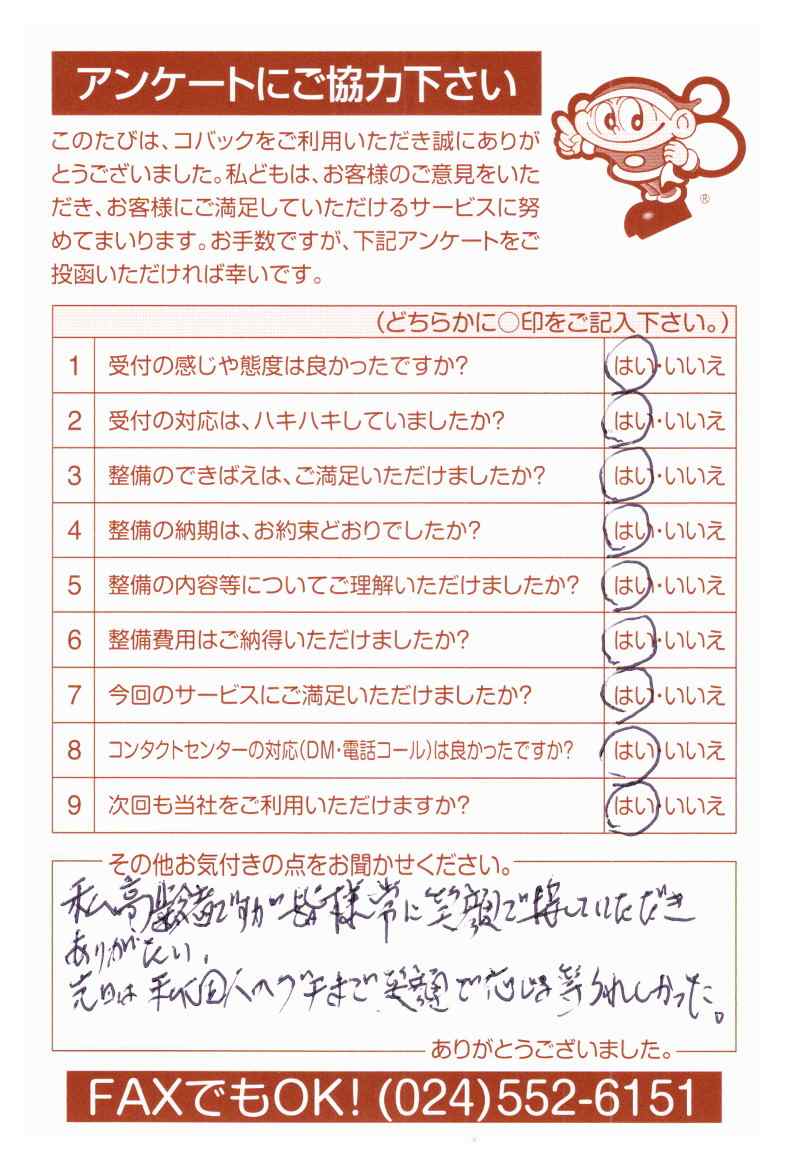 アンケートにご協力下さい
このたびは、コバックをご利用いただき誠にありが
とうございました。私どもは、お客様のご意見をいた
だき、お客様にご満足していただけるサービスに努
めてまいります。お手数ですが、下記アンケートをご
投函いただければ幸いです。
®
(どちらかに○印をご記入下さい。)
1 受付の感じや態度は良かったですか? はい・いいえ
2 受付の対応は、ハキハキしていましたか? はい・いいえ
3 整備のできばえは、ご満足いただけましたか? はい・いいえ
4 整備の納期は、お約束どおりでしたか? はい・いいえ
5 整備の内容等についてご理解いただけましたか? はい・いいえ
6 整備費用はご納得いただけましたか? はい・いいえ
7 今回のサービスにご満足いただけましたか? はい・いいえ
8 コンタクトセンターの対応(DM・電話コール)は良かったですか? はい・いいえ
9 次回も当社をご利用いただけますか? はい・いいえ
その他お気付きの点をお聞かせください。
私高齢者ですが皆様常に笑顔で接していただき
ありがたい、
先日は私 個人の まで笑顔で うれしかった。
ありがとうございました。
FAXでもOK! (024)552-6151